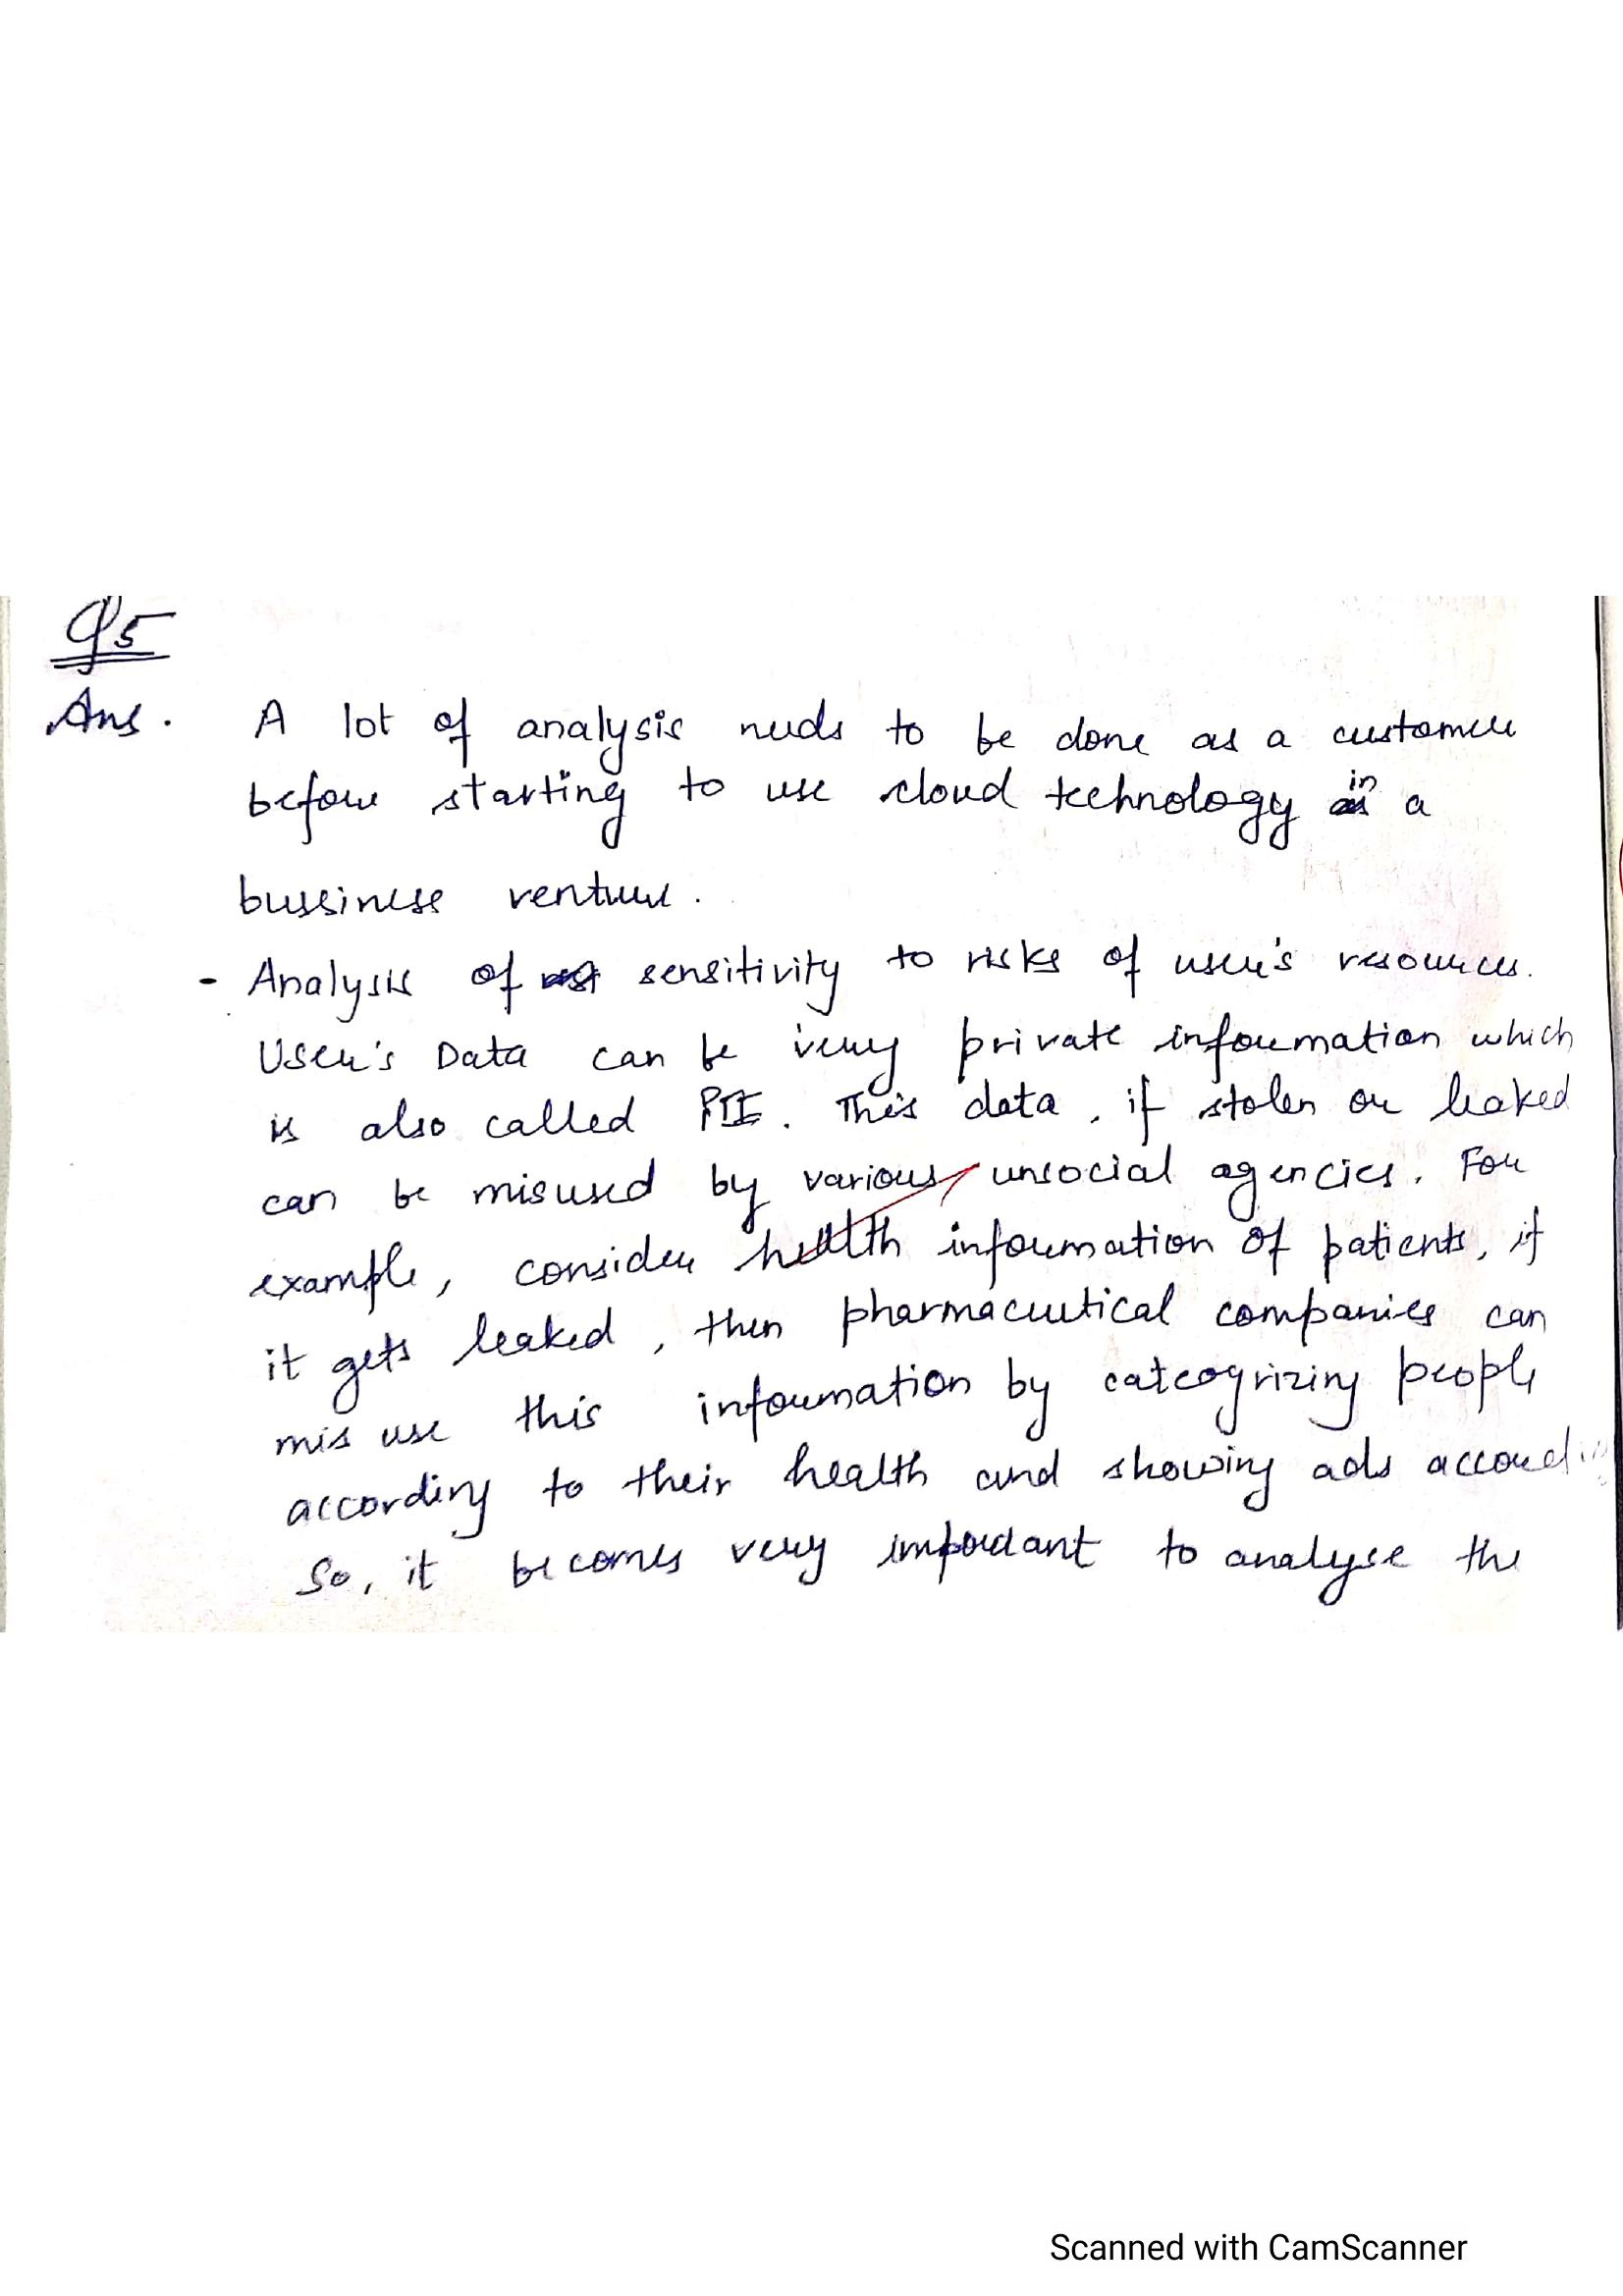 Q5
Ans. A lot of analysis needs to be done as a customer
before starting to use cloud technology in a
bussiness venture.
- Analysis of sensitivity to risks of user's resources.
User's Data can be very private information which
is also called PII. This data, if stolen or leaked
can be misused by various unsocial agencies. For
example, consider health information of patients, if
it gets leaked, then pharmaceutical companies can
mis use this information by catcogrizing people
according to their health and showing ads
So, it becomes very important to analyse the
Scanned with CamScanner